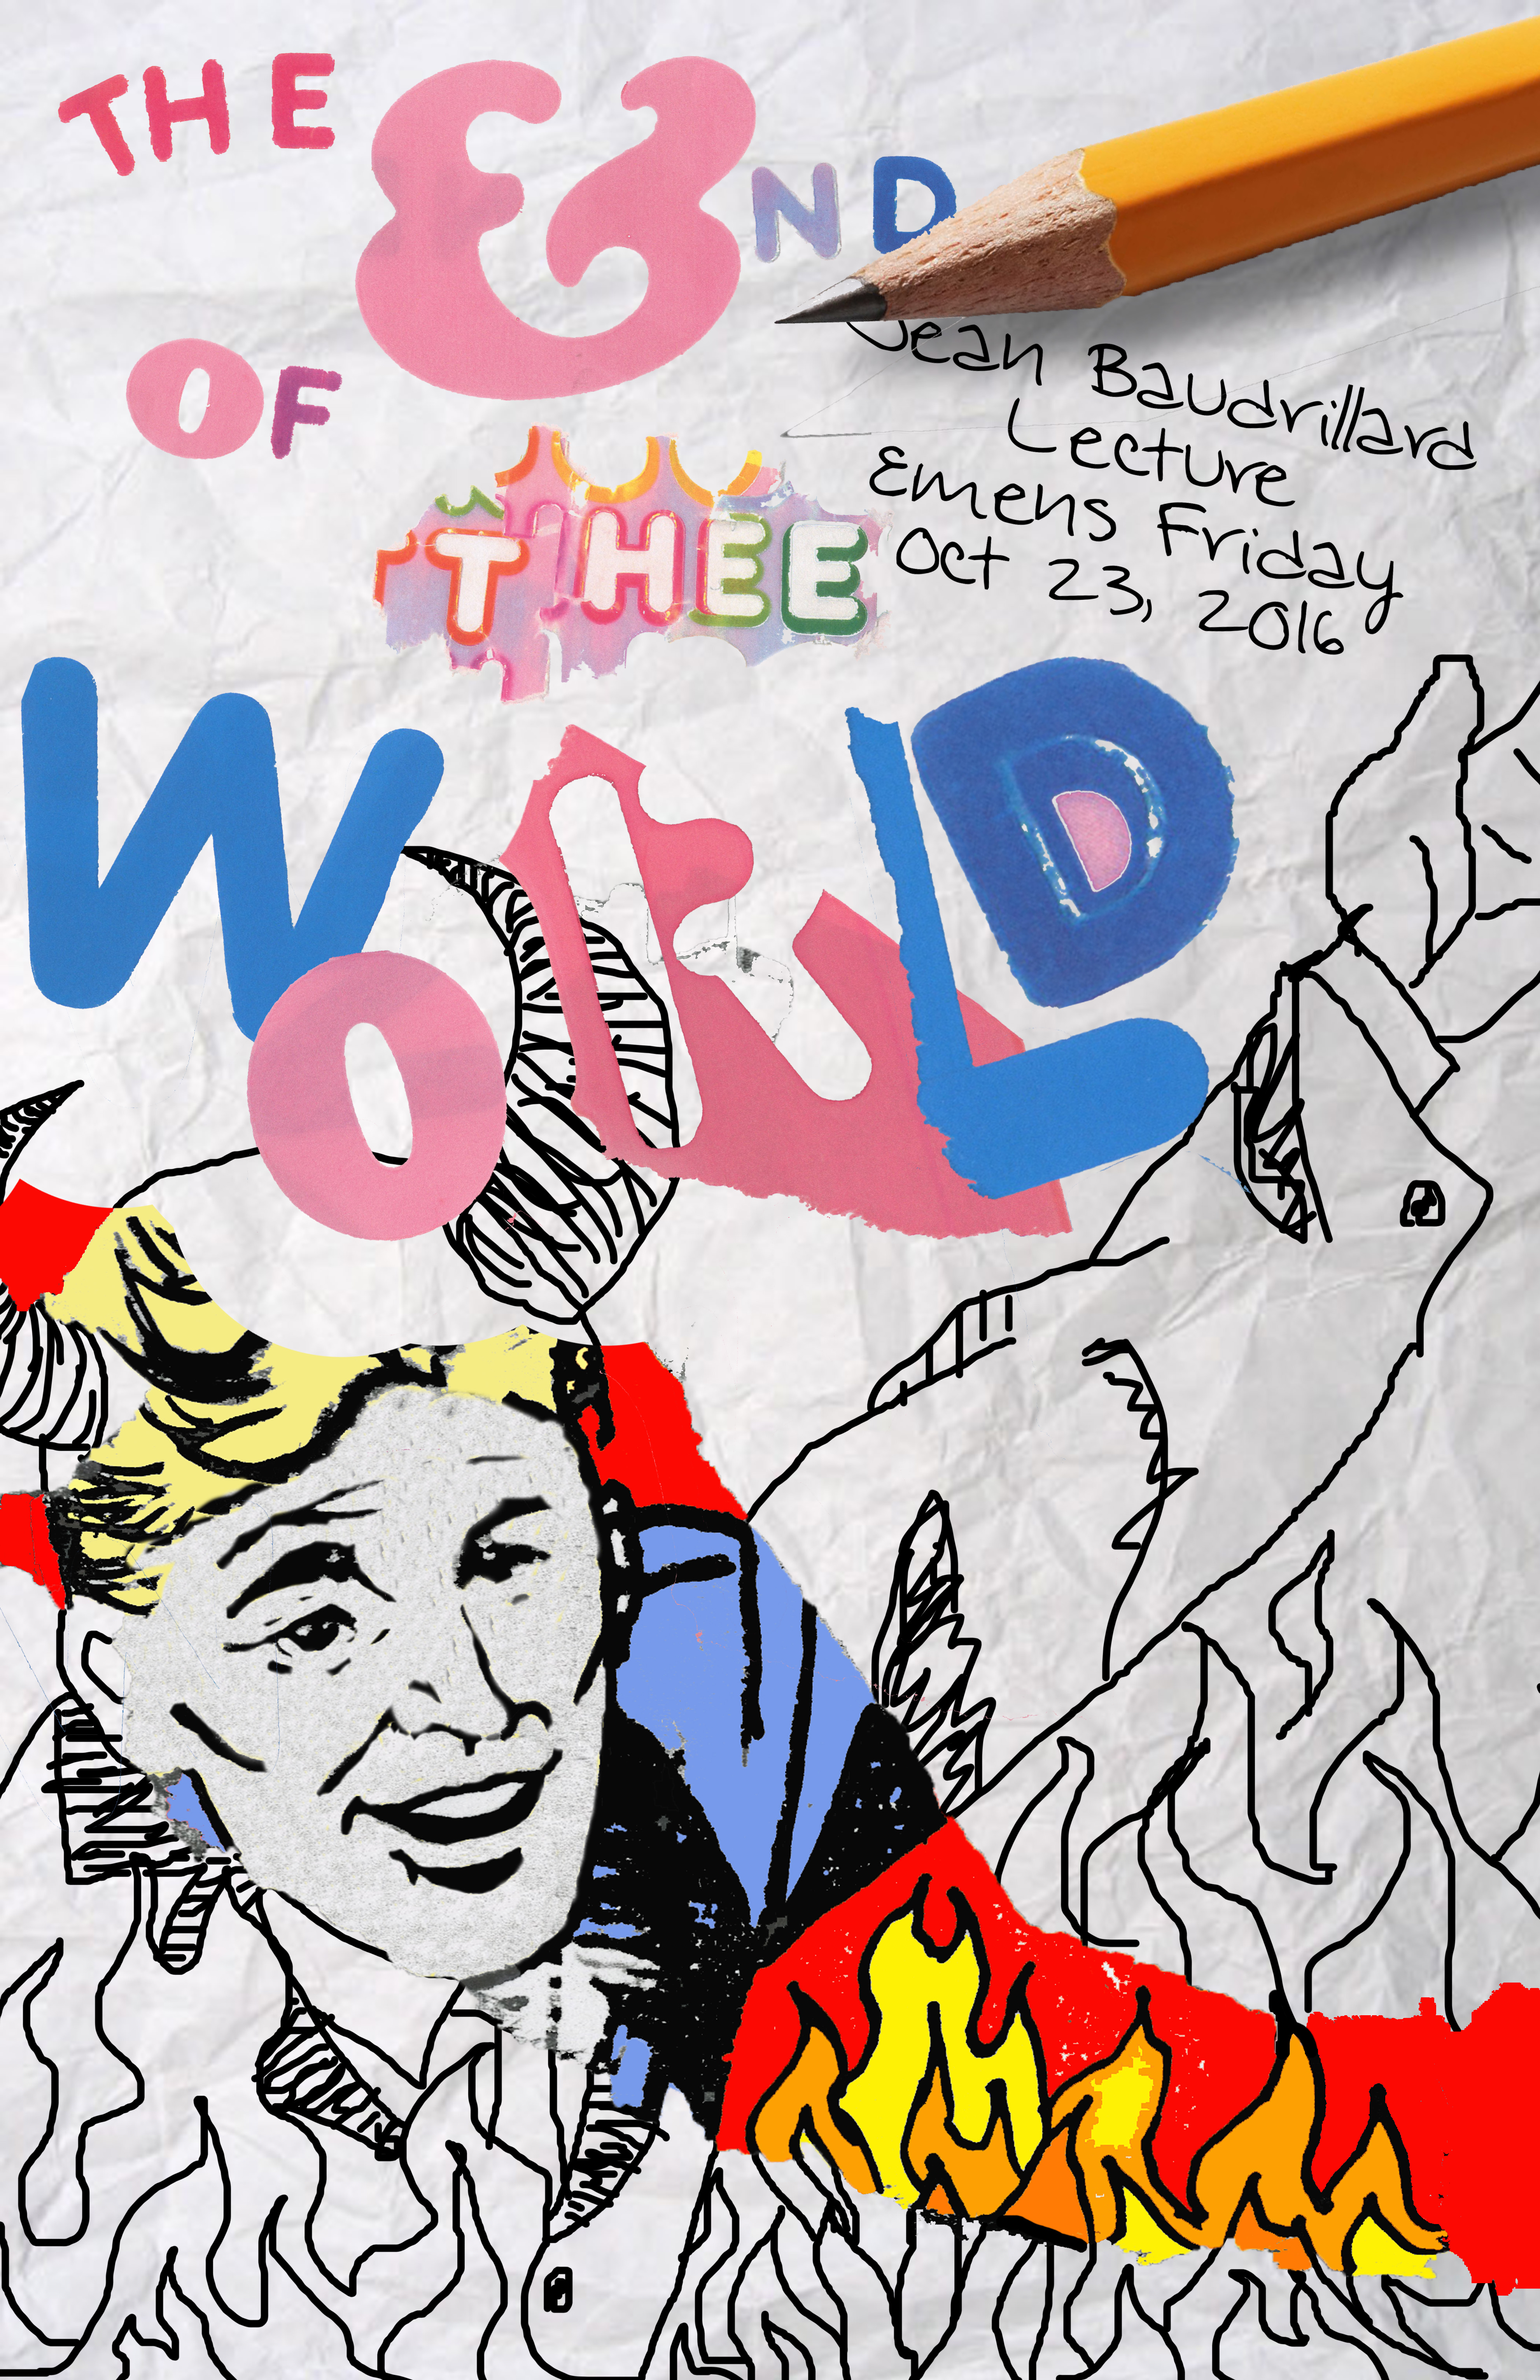 THE &ND
OF
THEE
WORLD
Jean Baudrillard
Lecture
Emens Friday
Oct 23, 2016